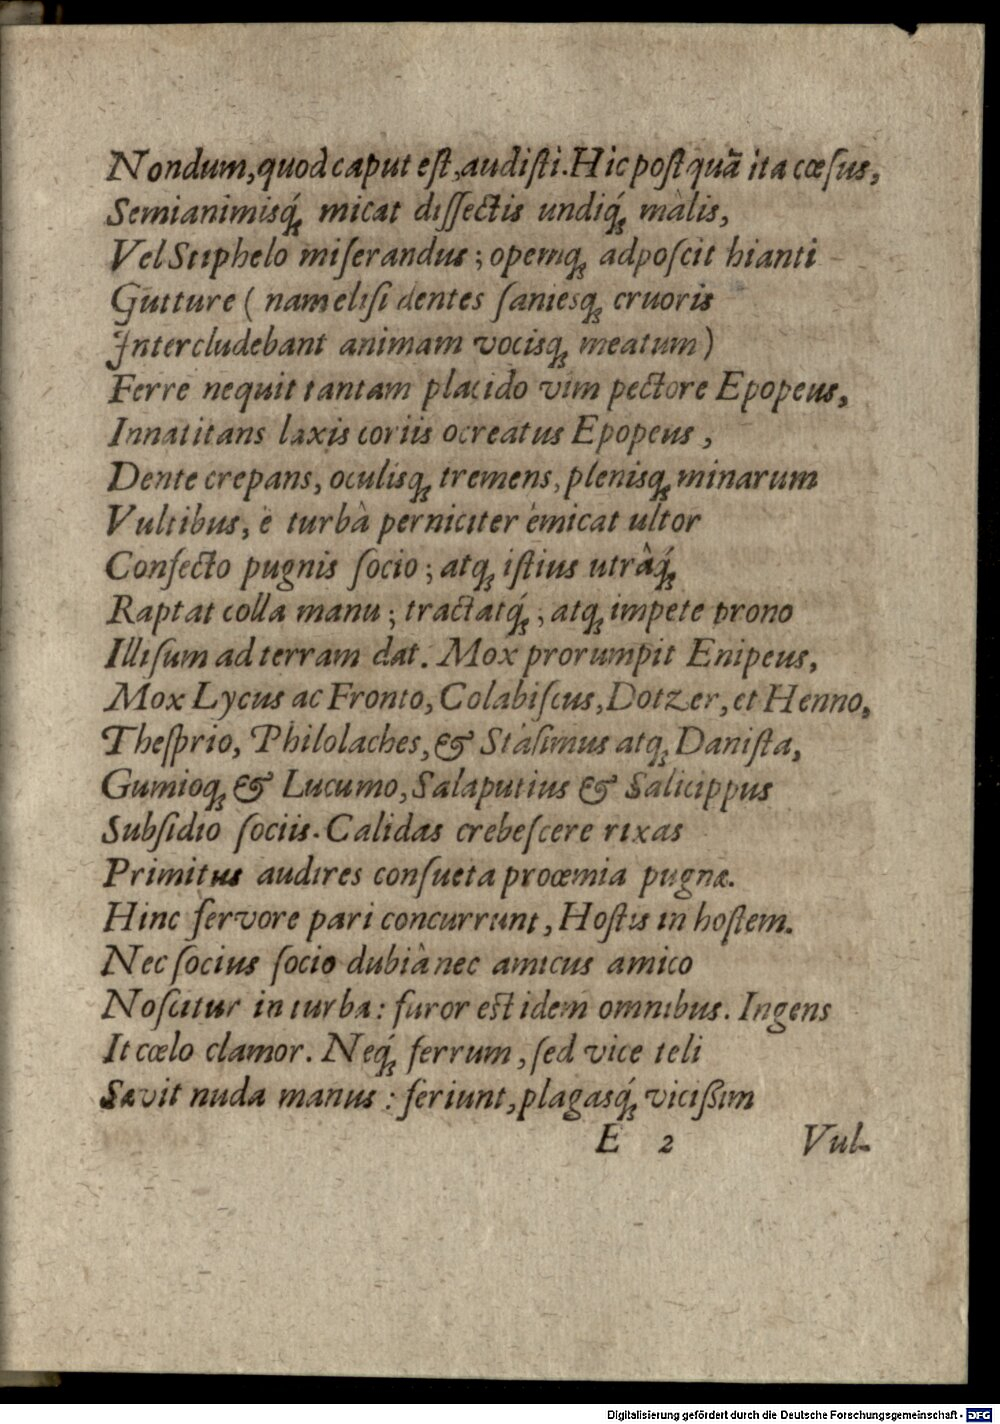 Nondum, quod caput eſt, audiſti. Hic poſtquã ita cœſus,
Semianimisq́ꝫ micat diſſectis undiq́ꝫ màlis,
Vel Stiphelo miſerandus; opemqꝫ adpoſcit hianti
Gutture ( nam eliſi dentes ſaniesqꝫ cruoris
Intercludebant animam vocisqꝫ meatum )
Ferre nequit tantam placido vim pectore Epopeus,
Innatitans laxis coriis ocreatus Epopeus,
Dente crepans, oculisqꝫ tremens, plenisqꝫ minarum
Vultibus, è turbà perniciter émicat ultor
Confecto pugnis ſocio; atqꝫ iſtius utrâq́ꝫ
Raptat colla manu; tractatq́ꝫ; atqꝫ impete prono
Illiſum ad terram dat. Mox prorumpit Enipeus,
Mox Lycus ac Fronto, Colabiſcus, Dotzer, et Henno,
Theſprio, Philolaches, & Stàſimus atqꝫ Daniſta,
Gumioqꝫ & Lucumo, Salaputius & Salicippus
Subſidio ſociis. Calidas crebeſcere rixas
Primitus audires conſueta proœmia pugnæ.
Hinc fervore pari concurrunt, Hoſtis in hoſtem.
Nec ſocius ſocio dubiâ nec amicus amico
Noſcitur in turba: furor eſt idem omnibus. Ingens
It cœlo clamor. Neq́ꝫ ferrum, ſed vice teli
Sævit nuda manus: feriunt, plagasq́ꝫ viciſſim
E 2 Vul-
Digitalisierung gefördert durch die Deutsche Forschungsgemeinschaft - DFG